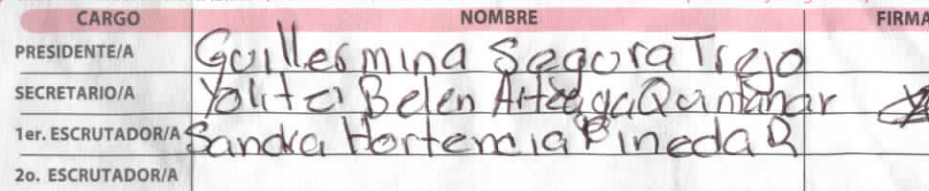 CARGO NOMBRE FIRMA
PRESIDENTE/A Guillermina Segura Trejo
SECRETARIO/A Yolitzi Belen Arteaga Quintanar
1er. ESCRUTADOR/A Sandra Hortencia Pineda R
2o. ESCRUTADOR/A